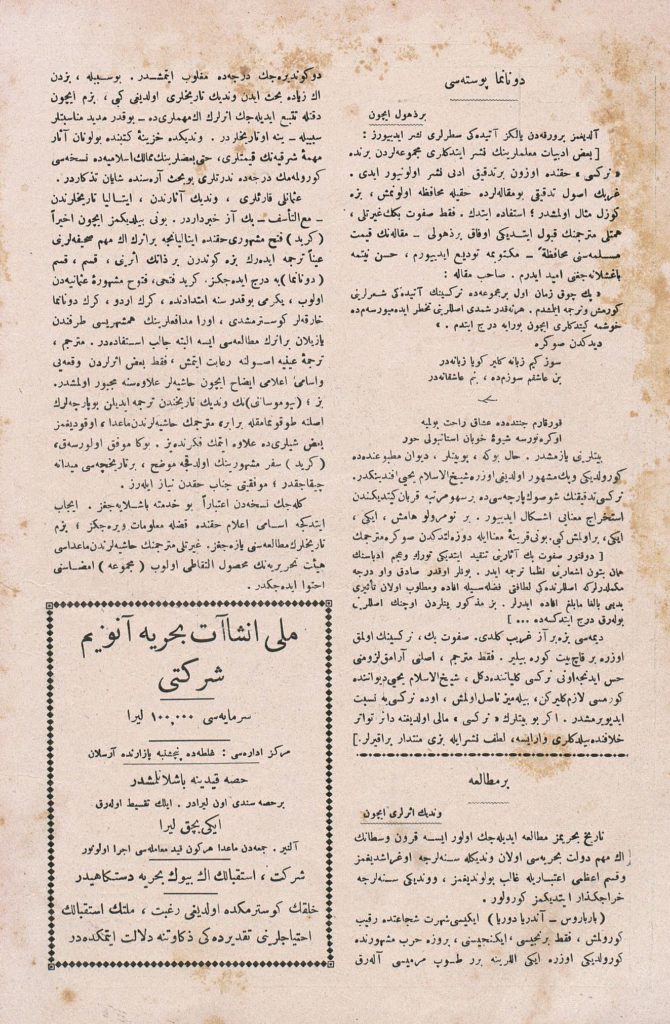 دونانما پوسته‌سی
برذهول ایچون
آلدیغمز برورقه‌دن یالکز آتیده‌کی سطرلری نشر ایدییورز :
[ بعض ادبیات معلملرینك نشر ایتدکاری مجموعه‌لردن برنده
« نرکسی » حقنده اوزون برتدقیق ادبی نشر اولونیور ایدی .
غربك اصول تدقیقی بومقاله‌لرده حقیله محافظه اولونمش ، بزه
کوزل مثال اولمشدر ؛ استفاده ایتدك . فقط صفوت بکك غیرتلی ،
همتلی مترجمنك قبول ایتدیکی اوفاق برذهولی ـ مقاله‌نك قیمت
مسلمه‌سنی محافظةً ـ مکتوبمه تودیع ایدییورم ، حسن نیتمه
باغشلانه‌جغنی امید ایدرم . صاحب مقاله :
« پك چوق زمان اول برمجموعه‌ده نرکسینك آتیده‌کی شعرلرینی
کورمش وترجمه ایلمشدم . هرنه‌قدر شمدی اصللرینی تخطر ایده‌میورسه‌م‌ده
خوشمه کیتدکلری ایچون بورایه درج ایتدم . »
دیدکدن صوکره
سوز کیم زبانه کلیر کویا زبانه‌در
بن عاشقم سوزم‌ده ، نم عاشقانه‌در
قورقارم جنتده‌ده عشاق راحت بولمیه
اوکره‌نورسه شیوهٔ خوبان استانبولی حور
بیتلرینی یازمشدر . حال بوکه ، بوبیتلر ، دیوان مطبوعنده‌ده
کورولدیکی وپك مشهور اولدیغی اوزره شیخ‌الاسلام یحیی افندینکدر .
نرکسی تدقیقنك شوصوك پارچه‌سی‌ده برسهو مرتبه قربان کیتدیکندن
استخراج معنایی اشکال ایدییور . بر نومرولو هامش ، ایکی ،
ایکی ، براولمش کبی . بونی قرینهٔ معناایله دوزلتدکدن صوکره مترجمك
[ دوقتور صفوت بك آثارینی تنقید ایتدیکی تورك وعجم ادباسنك
همان بتون اشعارینی نظماً ترجمه ایدر . بونلر اوقدر صادق واو درجه
مکملدرلرکه اصللرنده‌کی لطافتی فضله‌سیله افاده ومطلوب اولان تأثیری
بدیهی بالغا مابلغ افاده ایدرلر . بز مذکور بیتلردن اوچنك اصللرینی
بولەرق درج ایتدکسه‌ده ... ]
دیمه‌سی بزه بر آز غریب کلدی . صفوت بك ، نرکسینك اولمق
اوزره بر قاچ بیت کوره بیلیر . فقط مترجم ، اصلنی آرامق لزومنی
حس ایدنجه‌اونی نرکسی کلیاتنده دکل ، شیخ‌الاسلام یحیی دیواننده
کورمسی لازم‌کلیرکن ، بیله‌میز ناصل اولمش ، اوده نرکسی‌یه نسبت
ایدیویرمشدر . اکر بو بیتلرك « نرکسی » مالی اولدیغنه دائر تواتر
خلافنده سیلدکلری وارایسه ، لطف نشرایله بزی منتدار براقیرلر.]
برمطالعه
وندیك اثرلری ایچون
تاریخ بحریمز مطالعه ایدیله‌جك اولور ایسه قرون وسطانك
اك مهم دولت بحریه‌سی اولان وندیکله سنه‌لرجه اوغراشدیغمز
وقسم اعظمی اعتباریله غالب بولوندیغمز ، ووندیکی سنه‌لرجه
خراجکذار ایتدیکمز کورولور .
( بارباروس ـ آندریادوریا ) ایکیسی شهرت شجاعتده رقیب
کورلمش ، فقط برنجیسی ، ایکنجیسنی ، بروزه حرب مشهورنده
کورولدیکی اوزره ایکی اللرینه بر طوب مرمیسی آله‌رق
دوکوندیره‌جك درجه‌ده مغلوب ایتمشدر . بوسببله ، بزدن
اك زیاده بحث ایدن وندیك تاریخلری اولدیغی کبی ، بزم ایچون
دقتله تتبع ایدیله‌جك اثرلرك اك مهملری‌ده ـ بوقدر مدید مناسبتلر
سببیله ـ ینه اوتاریخلردر . وندیکده خزینهٔ کتبنده بولونان آثار
مهمهٔ شرقیه‌نك قیمتلری ، حتی بعضلرینك ممالك اسلامیه‌ده نسخه‌سی
کورولمه‌مك درجه‌ده ندرتلری بوبحث آره‌سنده شایان تذکاردر .
عثمانلی قارئلری ، وندیك آثارندن ، ایتالیا تاریخلرندن
ـ مع‌التأسف ـ پك آز خبرداردر . بونی بیلدیکمز ایچون اخیراً
( کرید ) فتح مشهوری حقنده ایتالیانجه براثرك اك مهم صحیفه‌لرینی
عیناً ترجمه ایده‌رك بزه کوندرن بر ذاتك اثرینی ، قسم ، قسم
( دونانما ) یه درج ایده‌جکز . کرید فتحی ، فتوح مشهورهٔ عثمانیه‌دن
اولوب ، یکرمی بوقدر سنه امتدادنده ، کرك اردو ، کرك دونانما
خارقه‌لر کوسترمشدی ، اورا مدافعلرینك همشهریسی طرفندن
یازیلان براثرك مطالعه‌سی ایسه البته جالب استفاده‌در . مترجم ،
ترجمهٔ عینیه اصولنه رعایت ایتمش ، فقط بعض اثرلردن وقعه‌یی
واسامیٔ اعلامی ایضاح ایچون حاشیه‌لر علاوه‌سنه مجبور اولمشدر.
بز ؛ (نیوموسانی) نك وندیك تاریخندن ترجمه ایدیلن بوپارچه‌لرك
اصلنه طوقونمامقله برابر، مترجمك حاشیه‌لرندن‌ماعدا ، اوقودیغمز
بعض شیلری‌ده علاوه ایتمك فکرنده‌یز . بوکا موفق اولورسه‌ق ،
( کرید ) سفر مشهورینك اولدقجه موضح ، برتاریخچه‌سی میدانه
چیقاجقدر ؛ موفقیتی جناب حقدن نیاز ایله‌رز .
کله‌جك نسخه‌دن اعتباراً بو خدمته باشلایه‌جغز . ایجاب
ایتدکجه اسامی اعلام حقنده فضله معلومات ویره‌جکز ؛ بزم
تاریخلرك مطالعه‌سنی یازه‌جغز . غیرتلی مترجمك حاشیه‌لرندن‌ماعداسی
هیأت تحریریه‌نك محصول التقاطی اولوب ( مجموعه ) امضاسنی
احتوا ایده‌جکدر .
ملی انشاآت بحریه آنونیم
شرکتی
سرمایه‌سی ۱۰۰,۰۰۰ لیرا
مرکز اداره‌سی : غلطه‌ده پنجشنبه بازارنده آرسلان
حصه قیدینه باشلانلمشدر
بر حصه سندی اون لیرادر . ایلك تقسیط اوله‌رق
ایکی بچق لیرا
آلنیر . جمعه‌دن ماعدا هرکون قید معامله‌سی اجرا اولونور
شرکت ، استقبالك اك بیوك بحریه دستکاهیدر
خلقك کوسترمکده اولدیغی رغبت ، ملتك استقبالك
احتیاجلرینی تقدیرده‌کی ذکاوتنه دلالت ایتمکده‌در